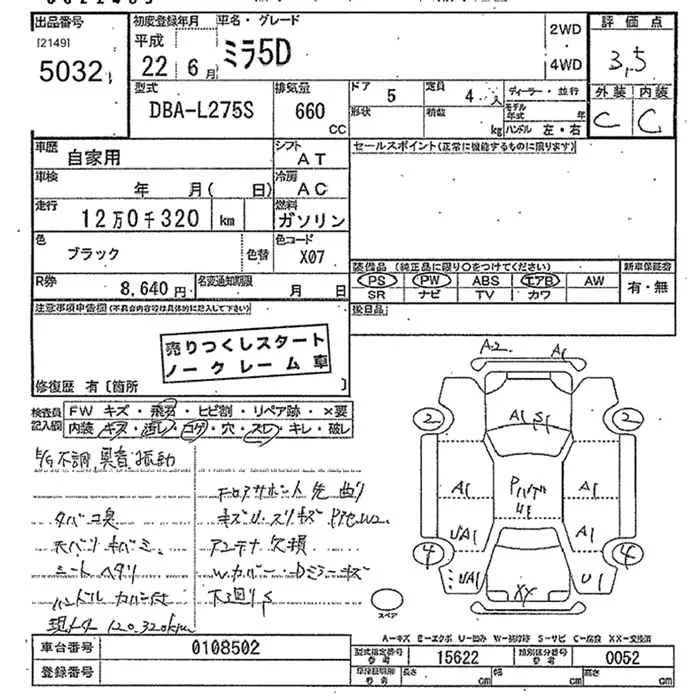 出品番号
[2149]
5032
初度登録年月 車名・グレード
平成
22 6月
ミラ5D
2WD
4WD
評価点
3,5
外装 内装
C C
型式
DBA-L275S
排気量
660
CC
ドア
5
定員
4 人
形状
積載
kg
ディーラー・並行
モデル年式 年
ハンドル 左・右
車歴
自家用
シフト
AT
車検
年 月( 日)
冷房
AC
走行
12万0千320 km
燃料
ガソリン
色
ブラック
色替
色コード
X07
R券
8,640円
名変通知期限
月 日
セールスポイント(正常に機能するものに限ります)
装備品 (純正品に限り○をつけてください)
新車保証書
PS PW ABS エアB AW
SR ナビ TV カワ
有・無
後日品
注意事項申告欄(不具合内容等は具体的に記入して下さい)
売りつくしスタート
ノークレーム車
修復歴 有〔箇所 〕
検査員
記入欄
FW キズ・飛石・ヒビ割・リペア跡・×要
内装 キズ・汚レ・コゲ・穴・スレ・キレ・破レ
不調,異音 振動
タバコ臭
アンテナ欠損
シートヘタリ
下廻りS
現メータ 120.320km
A2 A1
2 2
A1 S1
A1 A1
A1
4 4
U1
XX
スペア
A-キズ E-エクボ U-凹み W-補修跡 S-サビ C-腐食 XX-交換済
車台番号
0108502
登録番号
型式指定番号
参考
15622
類別区分番号
参考
0052
長さ cm
幅 cm
高さ cm